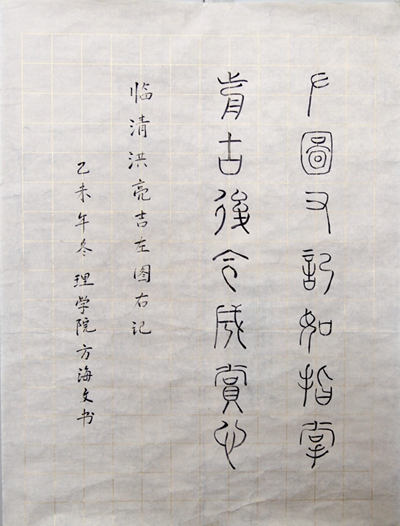 左圖右記如指掌
前古後今咸賞心
临清洪亮吉左图右记
乙未年冬理学院方海文书